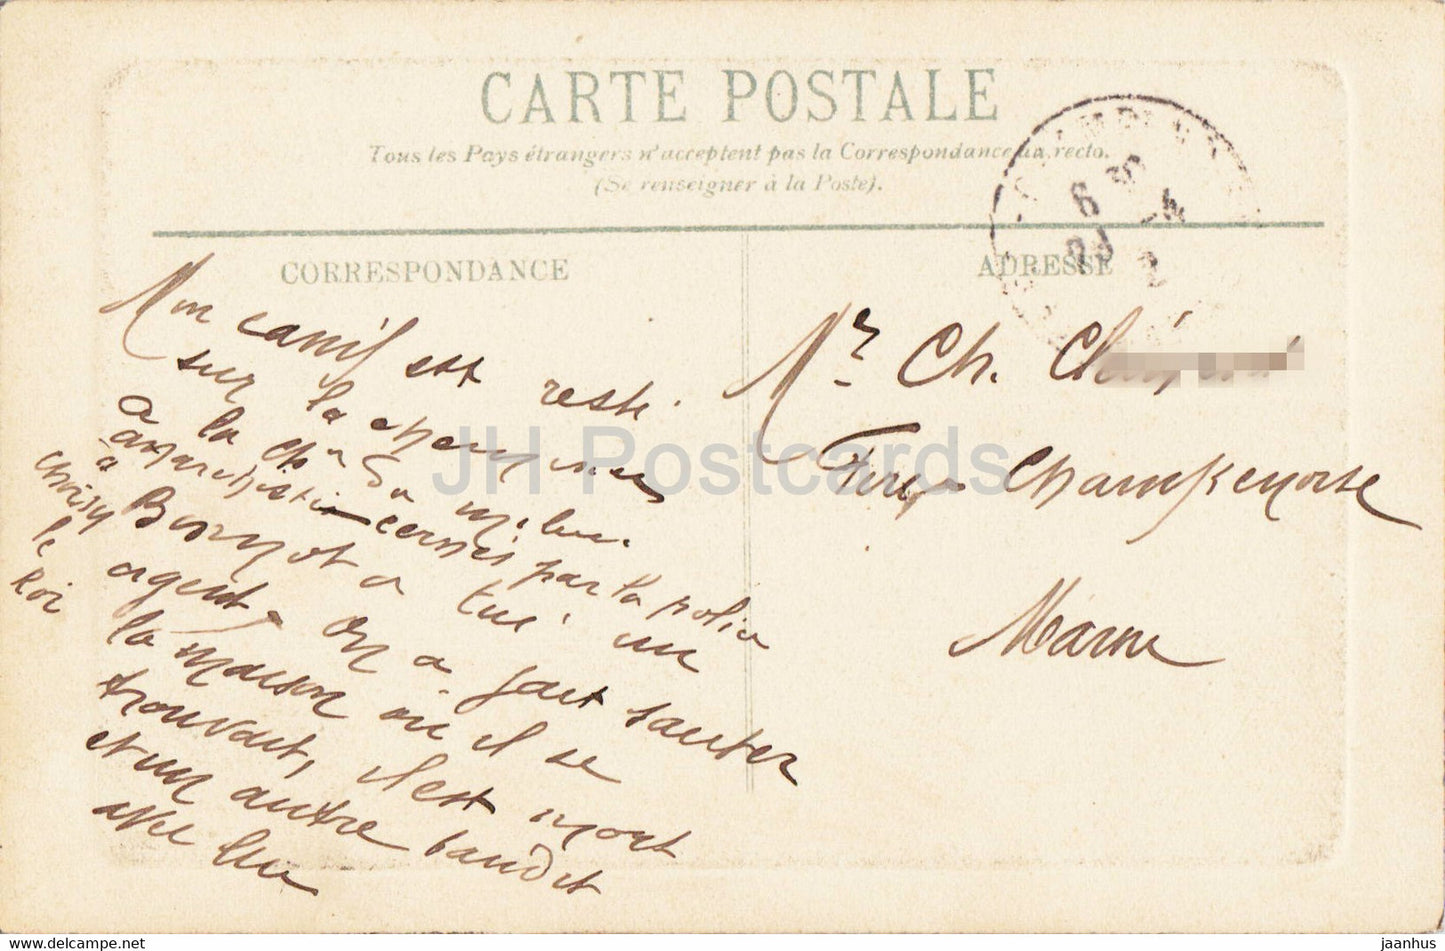 CARTE POSTALE
Tous les Pays étrangers n'acceptent pas la Correspondance au recto.
(Se renseigner à la Poste).
CORRESPONDANCE
ADRESSE
6 30
Mon canif est resté
sur la
a la
anarchiste cernés par la police
à
choisy
le
Roi
Bonnot a tué un
agent, on a fait sauter
la maison où il se
trouvait, il est mort
et un autre bandit
avec lui
Mr Ch.
Fère Champenoise
Marne
JH Postcards
https://jhpostcards.com
jaanhus